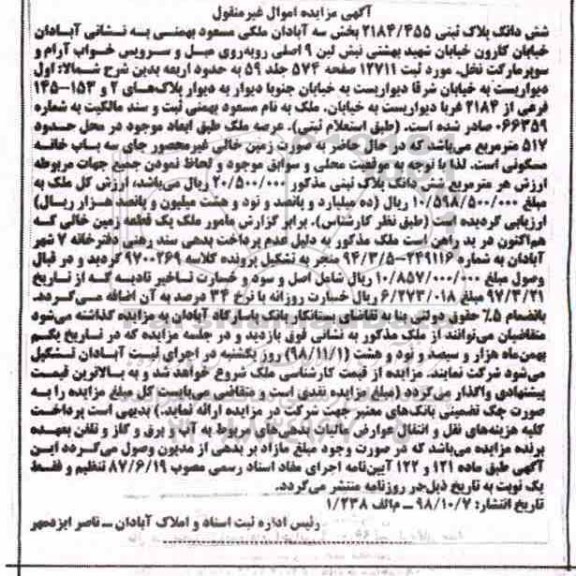 آگهی مزایده اموال غیرمنقول
شش دانگ پلاک ثبتی ۲۱۸۴/۴۵۵ بخش سه آبادان ملکی مسعود بهمنی به نشانی آبادان
خیابان کارون خیابان شهید بهشتی نبش لین ۹ اصلی روبه‌روی مبل و سرویس خواب آرام و
سوپرمارکت نخل. مورد ثبت ۱۲۷۱۱ صفحه ۵۷۴ جلد ۵۹ به حدود اربعه بدین شرح شمالا: اول
دیواریست به خیابان شرقا دیواریست به خیابان جنوبا دیوار به دیوار پلاک‌های ۲ و ۱۵۳–۱۴۵
فرعی از ۲۱۸۴ غربا دیواریست به خیابان. ملک به نام مسعود بهمنی ثبت و سند مالکیت به شماره
۰۶۶۳۵۹ صادر شده است. (طبق استعلام ثبتی). عرصه ملک طبق ابعاد موجود در محل حدود
۵۱۷ مترمربع می‌باشد که در حال حاضر به صورت زمین خالی غیرمحصور جای سه باب خانه
مسکونی است. لذا با توجه به موقعیت محلی و سوابق موجود و لحاظ نمودن جمیع جهات مربوطه
ارزش هر مترمربع شش دانگ پلاک ثبتی مذکور ۲۰/۵۰۰/۰۰۰ ریال می‌باشد، ارزش کل ملک به
مبلغ ۱۰/۵۹۸/۵۰۰/۰۰۰ ریال (ده میلیارد و پانصد و نود و هشت میلیون و پانصد هزار ریال)
ارزیابی گردیده است. (طبق نظر کارشناس). برابر گزارش مامور ملک یک قطعه زمین خالی که
هم‌اکنون در ید راهن است ملک مذکور به دلیل عدم پرداخت بدهی سند رهنی دفترخانه ۷ شهر
آبادان به شماره ۲۴۹۱۱۶–۹۴/۳/۵ منجر به تشکیل پرونده کلاسه ۹۷۰۰۲۶۹ گردید و در قبال
وصول مبلغ ۱۰/۸۵۷/۰۰۰/۰۰۰ ریال شامل اصل و سود و خسارت تاخیر تادیه که از تاریخ
۹۷/۳/۲۱ مبلغ ۶/۲۷۳/۰۱۸ ریال خسارت روزانه با نرخ ۳۴ درصد به آن اضافه می‌گردد.
بانضمام ۵٪ حقوق دولتی بنا به تقاضای بستانکار بانک پاسارگاد آبادان به مزایده گذاشته می‌شود
متقاضیان می‌توانند از ملک مذکور به نشانی فوق بازدید و در جلسه مزایده که در تاریخ یکم
بهمن‌ماه هزار و سیصد و نود و هشت (۹۸/۱۱/۱) روز یکشنبه در اجرای ثبت آبادان تشکیل
می‌شود شرکت نمایند. مزایده از قیمت کارشناسی ملک شروع خواهد شد و به بالاترین قیمت
پیشنهادی واگذار می‌گردد (مبلغ مزایده نقدی است و متقاضی می‌بایست کل مبلغ مزایده را به
صورت چک تضمینی بانک‌های معتبر جهت شرکت در مزایده ارائه نماید.) بدیهی است پرداخت
کلیه هزینه‌های نقل و انتقال عوارض مالیات بدهی‌های مربوط به آب و برق و گاز و تلفن بعهده
برنده مزایده می‌باشد که در صورت وجود مبلغ مازاد بر بدهی از مدیون وصول می‌گردد این
آگهی طبق ماده ۱۲۱ و ۱۲۲ آیین‌نامه اجرای مفاد اسناد رسمی مصوب ۸۷/۶/۱۹ تنظیم و فقط
یک نوبت به تاریخ ذیل‌در روزنامه منتشر می‌گردد.
تاریخ انتشار: ۹۸/۱۰/۷ – م‌الف ۱/۲۳۸
رئیس اداره ثبت اسناد و املاک آبادان – ناصر ایزدمهر